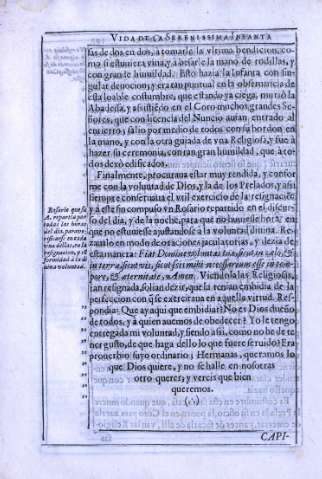 VIDA DE LA SERENISSIMA INFANTA
sas de dos en dos, a tomarle la vltima bendicion, co-
mo si estuuiera viua, y a besarle la mano de rodillas, y
con grande humildad. Esto hazia la Infanta con sin-
gular deuocion, y era tan puntual en la obseruancia de
esta loable costumbre, que estando ya ciega, murió la
Abadessa, y assistiendo en el Coro muchos grandes Se-
ñores, que con licencia del Nuncio auian entrado al
entierro, salio por medio de todos con su bordon en
la mano, y con la otra guiada de vna Religiosa, y fue à
hazer su ceremonia, con tan gran humildad, que a to-
dos dexó edificados.
Finalmente, procuraua estar muy rendida, y confor
me con la voluntad de Dios, y la de los Prelados, y assi
siempre conseruaua el vtil exercicio de la resignacion
y à este fin compuso vn Rosario repartido en el discur-
so del dia, y de la noche, para que no huuiesse hora en
que no estuuiesse ajustandose à la voluntad diuina. Re-
zaualo en modo de oraciones jaculatorias, y dezia de
esta manera: Fiat Domine voluntas tua, sicut in cælo, &
in terra, sicut vis, sicut scis mihi necessarium esse in tem-
pore, & æternitate, Amen. Viendola las Religiosas,
tan resignada, solian dezir, que la tenian embidia de la
perfeccion con que se exercitaua en aquella virtud. Res-
pondia: Que ay aqui que embidiar? No es Dios dueño
de todos, y à quien auemos de obedecer? Yo le tengo
entregada mi voluntad, y siendo assi, como no he de te-
ner gusto, de que haga dello lo que fuere seruido? Era
prouerbio suyo ordinario; Hermanas, queramos lo
que Dios quiere, y no se halle en nosotras
otro querer, y vereis que bien
queremos.
(∴)
Rosario que su
A. repartia por
todas las horas
del dia, para
exercitarse en esta
resignacion, y
voluntad.
CAPI-